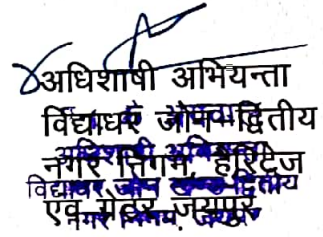 अधिशाषी अभियन्ता
विद्याधर जोन-द्वितीय
नगर निगम, हैरिटेज
एवं ग्रेटर जयपुर
अधिशाषी अभियन्ता
विद्याधर जोन द्वितीय
नगर निगम, जयपुर